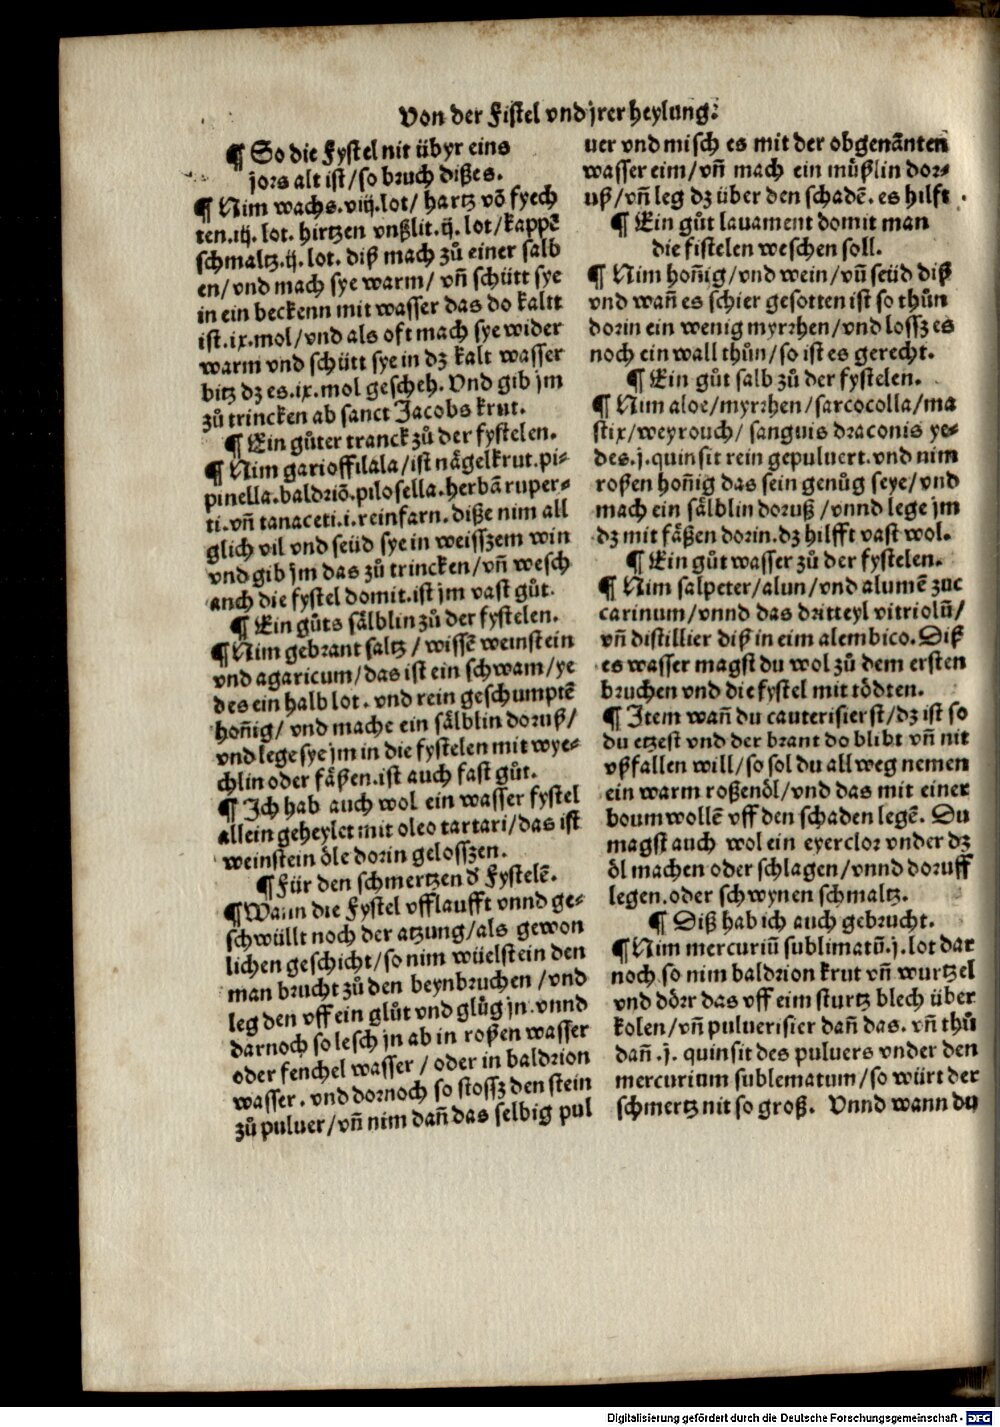 Von der Fistel vnd jrer heylung.
¶ So die Fystel nit übyr eins
jors alt ist/so bruch dißes.
¶ Nim wachs.viij.lot/ hartz võ fyech
ten.iij. lot. hirtzen vnßlit.ij. lot/kappẽ
schmaltz.ij. lot. diß mach zů einer salb
en/vnd mach sye warm/ vñ schütt sye
in ein beckenn mit wasser das do kaltt
ist.ix.mol/vnd als oft mach sye wider
warm vnd schütt sye in dz kalt wasser
bitz dz es.ix.mol gescheh. Vnd gib jm
zů trincken ab sanct Jacobs krut.
¶ Ein gůter tranck zů der fystelen.
¶ Nim garioffilala/ist nägelkrut.pi-
pinella.baldriõ.pilosella.herbã ruper-
ti.vñ tanaceti.i.reinfarn.diße nim all
glich vil vnd seüd sye in weisszem win
vnd gib jm das zů trincken/vñ wesch
auch die fystel domit.ist jm vast gůt.
¶ Ein gůts sälblin zů der fystelen.
¶ Nim gebrant saltz / wissẽ weinstein
vnd agaricum/das ist ein schwam/ye
des ein halb lot. vnd rein geschumptẽ
hoñig/ vnd mache ein sälblin doruß/
vnd lege sye jm in die fystelen mit wye-
chlin oder fäßen.ist auch fast gůt.
¶ Jch hab auch wol ein wasser fystel
allein geheylet mit oleo tartari/das ist
weinstein öle dorin gelosszen.
¶ Für den schmertzen d̕ Fystelẽ.
¶ Wann die Fystel vfflaufft vnnd ge-
schwüllt noch der atzung/als gewon
lichen geschicht/so nim wüelstein den
man brucht zů den beynbruchen /vnd
leg den vff ein glůt vnd glüg jn.vnnd
darnoch so lesch jn ab in roßen wasser
oder fenchel wasser / oder in baldrion
wasser. vnd dornoch so stossz den stein
zů puluer/vñ nim dañ das selbig pul
uer vnd misch es mit der obgenãnten
wasser eim/vñ mach ein müßlin dor-
uß/vñ leg dz über den schadẽ. es hilft.
¶ Ein gůt lauament domit man
die fistelen weschen soll.
¶ Nim hoñig/vnd wein/vñ seüd diß
vnd wañ es schier gesotten ist so thůn
dorin ein wenig myrrhen/vnd lossz es
noch ein wall thůn/so ist es gerecht.
¶ Ein gůt salb zů der fystelen.
¶ Nim aloe/myrrhen/sarcocolla/ma
stix/weyrouch/ sanguis draconis ye-
des.j.quinsit rein gepuluert.vnd nim
roßen hoñig das sein genůg seye/vnd
mach ein sälblin doruß /vnnd lege jm
dz mit fäßen dorin.dz hilfft vast wol.
¶ Ein gůt wasser zů der fystelen.
¶ Nim salpeter/alun/vnd alumẽ zuc
carinum/vnnd das dritteyl vitriolũ/
vñ distillier diß in eim alembico. Diß
es wasser magst du wol zů dem ersten
bruchen vnd die fystel mit tödten.
¶ Jtem wañ du cauterisierst/dz ist so
du etzest vnd der brant do blibt vñ nit
vßfallen will/so sol du allweg nemen
ein warm roßenöl/vnd das mit einer
boumwollẽ vff den schaden legẽ. Du
magst auch wol ein eyerclor vnder dz
öl machen oder schlagen/vnnd doruff
legen.oder schwynen schmaltz.
¶ Diß hab ich auch gebrucht.
¶ Nim mercuriũ sublimatũ.j.lot dar
noch so nim baldrion krut vñ wurtzel
vnd dörr das vff eim sturtz blech über
kolen/vñ puluerisier dañ das. vñ thů
dañ .j. quinsit des puluers vnder den
mercurium sublematum/so würt der
schmertz nit so groß. Vnnd wann du
Digitalisierung gefördert durch die Deutsche Forschungsgemeinschaft - DFG